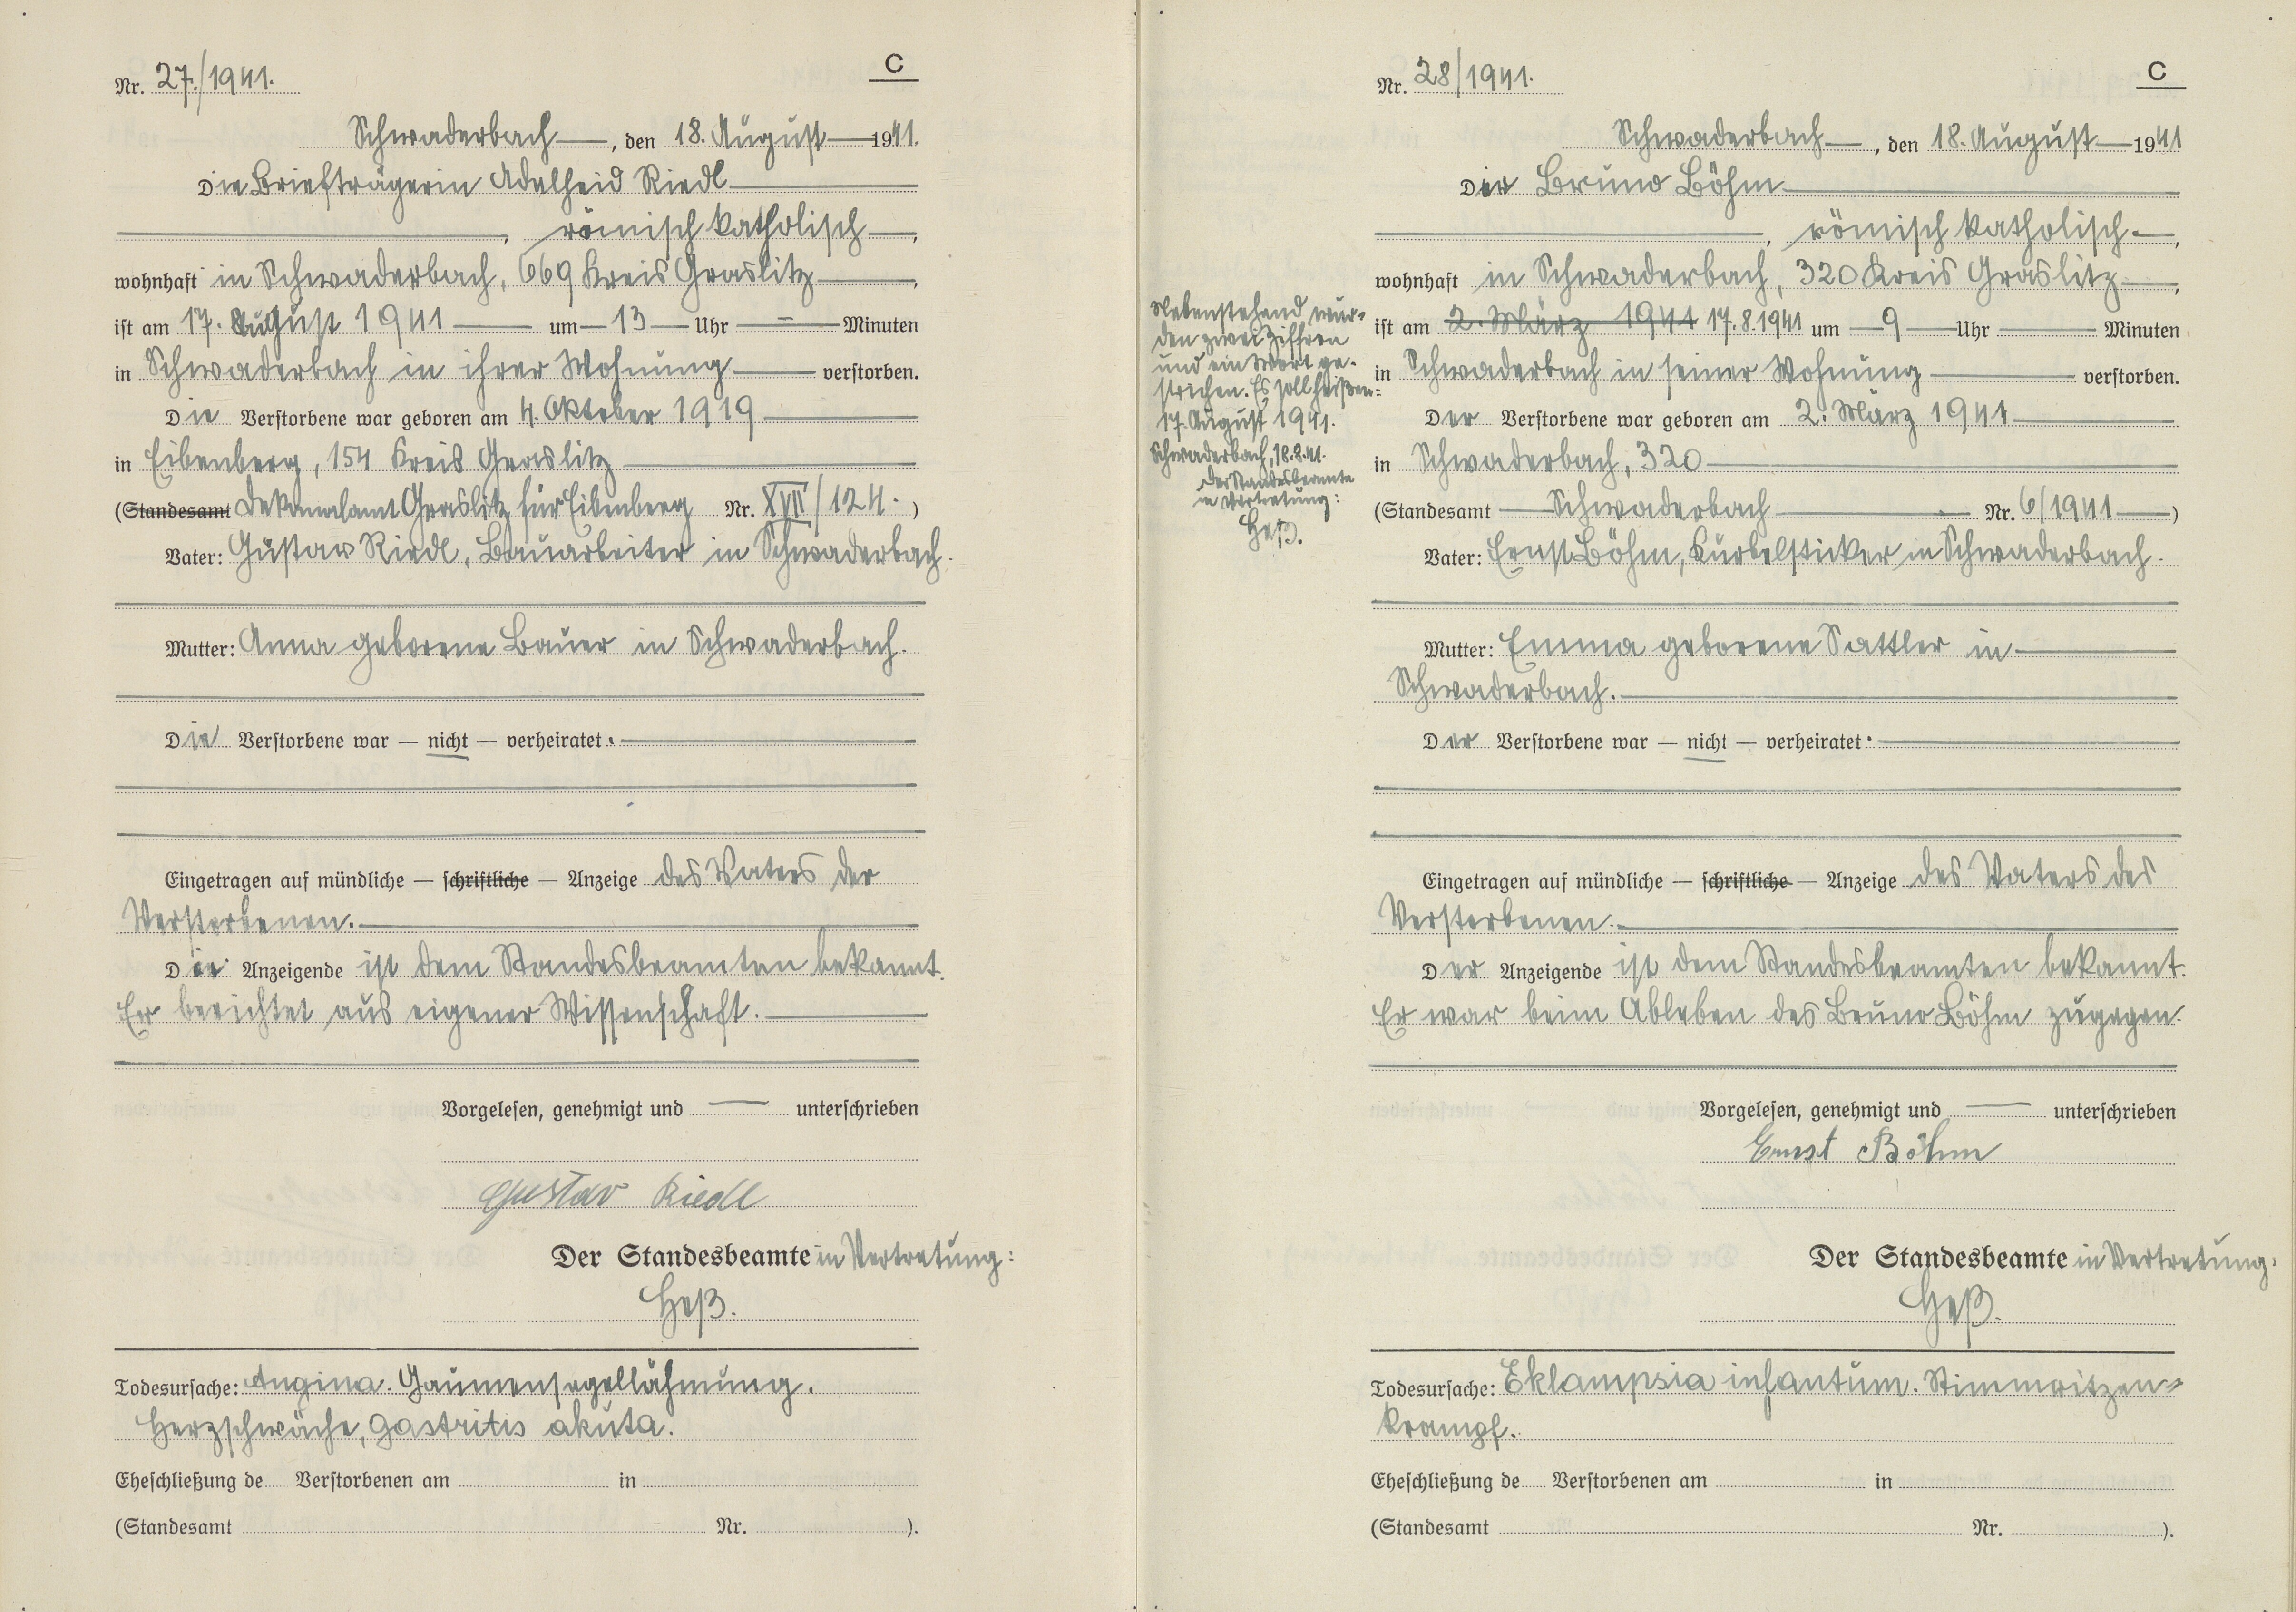 C
Nr. 27./1941.
Schwaderbach, den 18. August 1941.
Die Briefträgerin Adelheid Riedl
, römisch katholisch,
wohnhaft in Schwaderbach, 669 Kreis Graslitz,
ist am 17. August 1941 um 13 Uhr — Minuten
in Schwaderbach in ihrer Wohnung verstorben.
Die Verstorbene war geboren am 4. Oktober 1919
in Eibenberg, 154 Kreis Graslitz
(Standesamt Dekanalamt Graslitz für Eibenberg Nr. XVII/124.)
Vater: Gustav Riedl, Bauarbeiter in Schwaderbach.
Mutter: Anna geborene Bauer in Schwaderbach.
Die Verstorbene war — nicht — verheiratet.
Eingetragen auf mündliche — schriftliche — Anzeige des Vaters der
Verstorbenen.
Der Anzeigende ist dem Standesbeamten bekannt.
Er berichtet aus eigener Wissenschaft.
Vorgelesen, genehmigt und — unterschrieben
Gustav Riedl
Der Standesbeamte in Vertretung:
Heß.
Todesursache: Angina. Gaumensegellähmung.
Herzschwäche, Gastritis akuta.
Eheschließung de Verstorbenen am in
(Standesamt Nr. ).
C
Nr. 28/1941.
Schwaderbach, den 18. August 1941
Der Bruno Böhm
, römisch katholisch,
wohnhaft in Schwaderbach, 320 Kreis Graslitz,
ist am 2. März 1941 17.8.1941 um 9 Uhr Minuten
in Schwaderbach in seiner Wohnung verstorben.
Der Verstorbene war geboren am 2. März 1941
in Schwaderbach, 320
(Standesamt Schwaderbach Nr. 6/1941)
Vater: Ernst Böhm, Kurbelsticker in Schwaderbach.
Mutter: Emma geborene Sattler in
Schwaderbach.
Der Verstorbene war — nicht — verheiratet.
Eingetragen auf mündliche — schriftliche — Anzeige des Vaters des
Verstorbenen.
Der Anzeigende ist dem Standesbeamten bekannt.
Er war beim Ableben des Bruno Böhm zugegen.
Vorgelesen, genehmigt und — unterschrieben
Ernst Böhm
Der Standesbeamte in Vertretung:
Heß.
Todesursache: Eklampsia infantum. Stimmritzen-
krampf.
Eheschließung de Verstorbenen am in
(Standesamt Nr. ).
Nebenstehend wur-
den zwei Ziffern
und ein Wort ge-
strichen. Es soll heißen:
17. August 1941.
Schwaderbach, 18.8.41.
Der Standesbeamte
in Vertretung:
Heß.